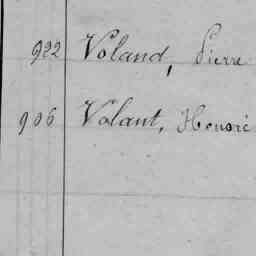 922 Voland, Pierre
906 Volant, Honoré